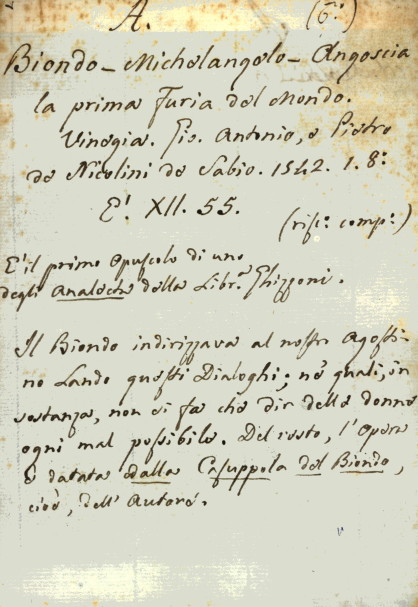 A. (6:)
Biondo - Michelangelo - Angoscia
la prima Furia del Mondo.
Vinegia. Gio. Antonio, e Pietro
de Nicolini de Sabio. 1542. 1. 8:
E! XII. 55.
(rifs: comp:)
E' il primo opuscolo di uno
degli Analoche della Libr.a Ghizzoni.
Il Biondo indirizzava al nostro Agosti-
no Lando questi Dialoghi; ne' quali, in
sostanza, non si fa che dir delle donne
ogni mal possibile. Del resto, l'Opera
è datata dalla Casuppola del Biondo,
cioè, dell' Autore.